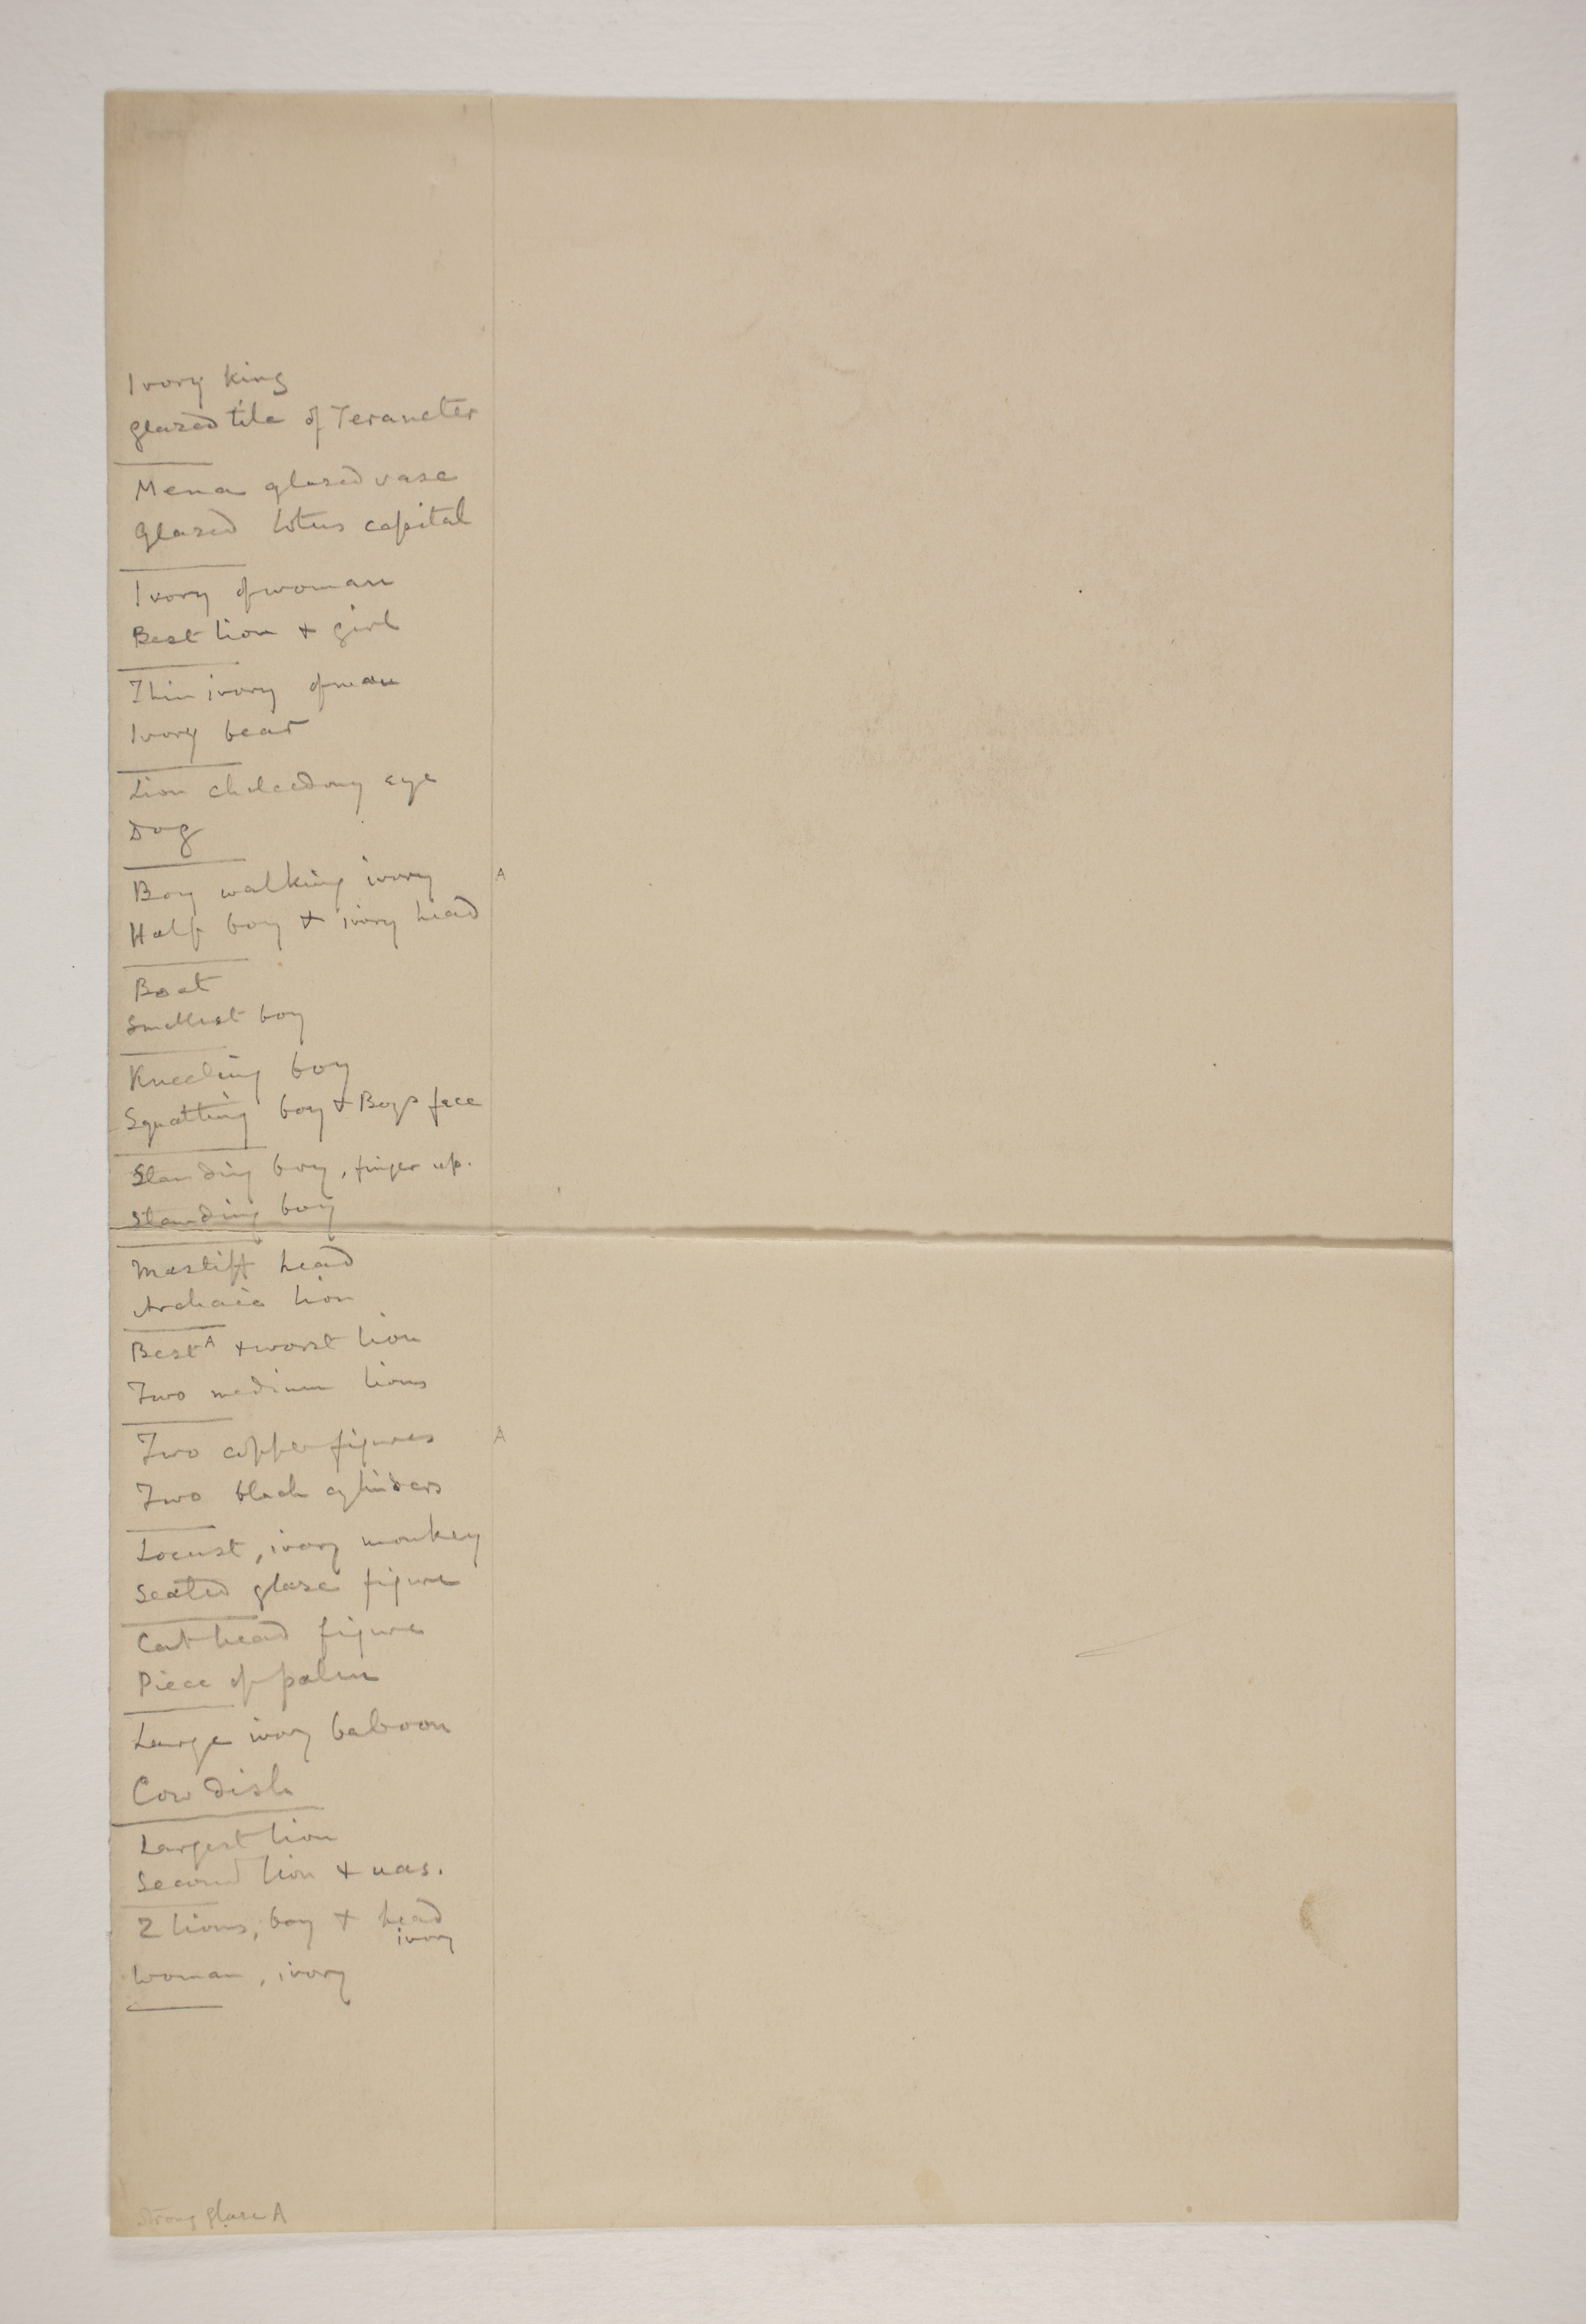 Ivory king
glazed tile of Teraneter
Mena glazed vase
Glazed lotus capital
Ivory of woman
Best lion + girl
Thin ivory of man
Ivory bear
Lion chalcedony eye
Dog
Boy walking ivory A
Half boy + ivory head
Boat
Smallest boy
Kneeling boy
Squatting boy + Boys face
Standing boy, finger up.
Standing boy
Mastiff head
Archaic lion
Best A + worst lion
Two medium lions
Two copper figures A
Two black cylinders
Locust, ivory monkey
Seated glaze figure
Cat head figure
Piece of palm
Large ivory baboon
Cow dish
Largest lion
Second lion + uas.
2 lions, boy + head
ivory
Woman, ivory
Strong glaze A